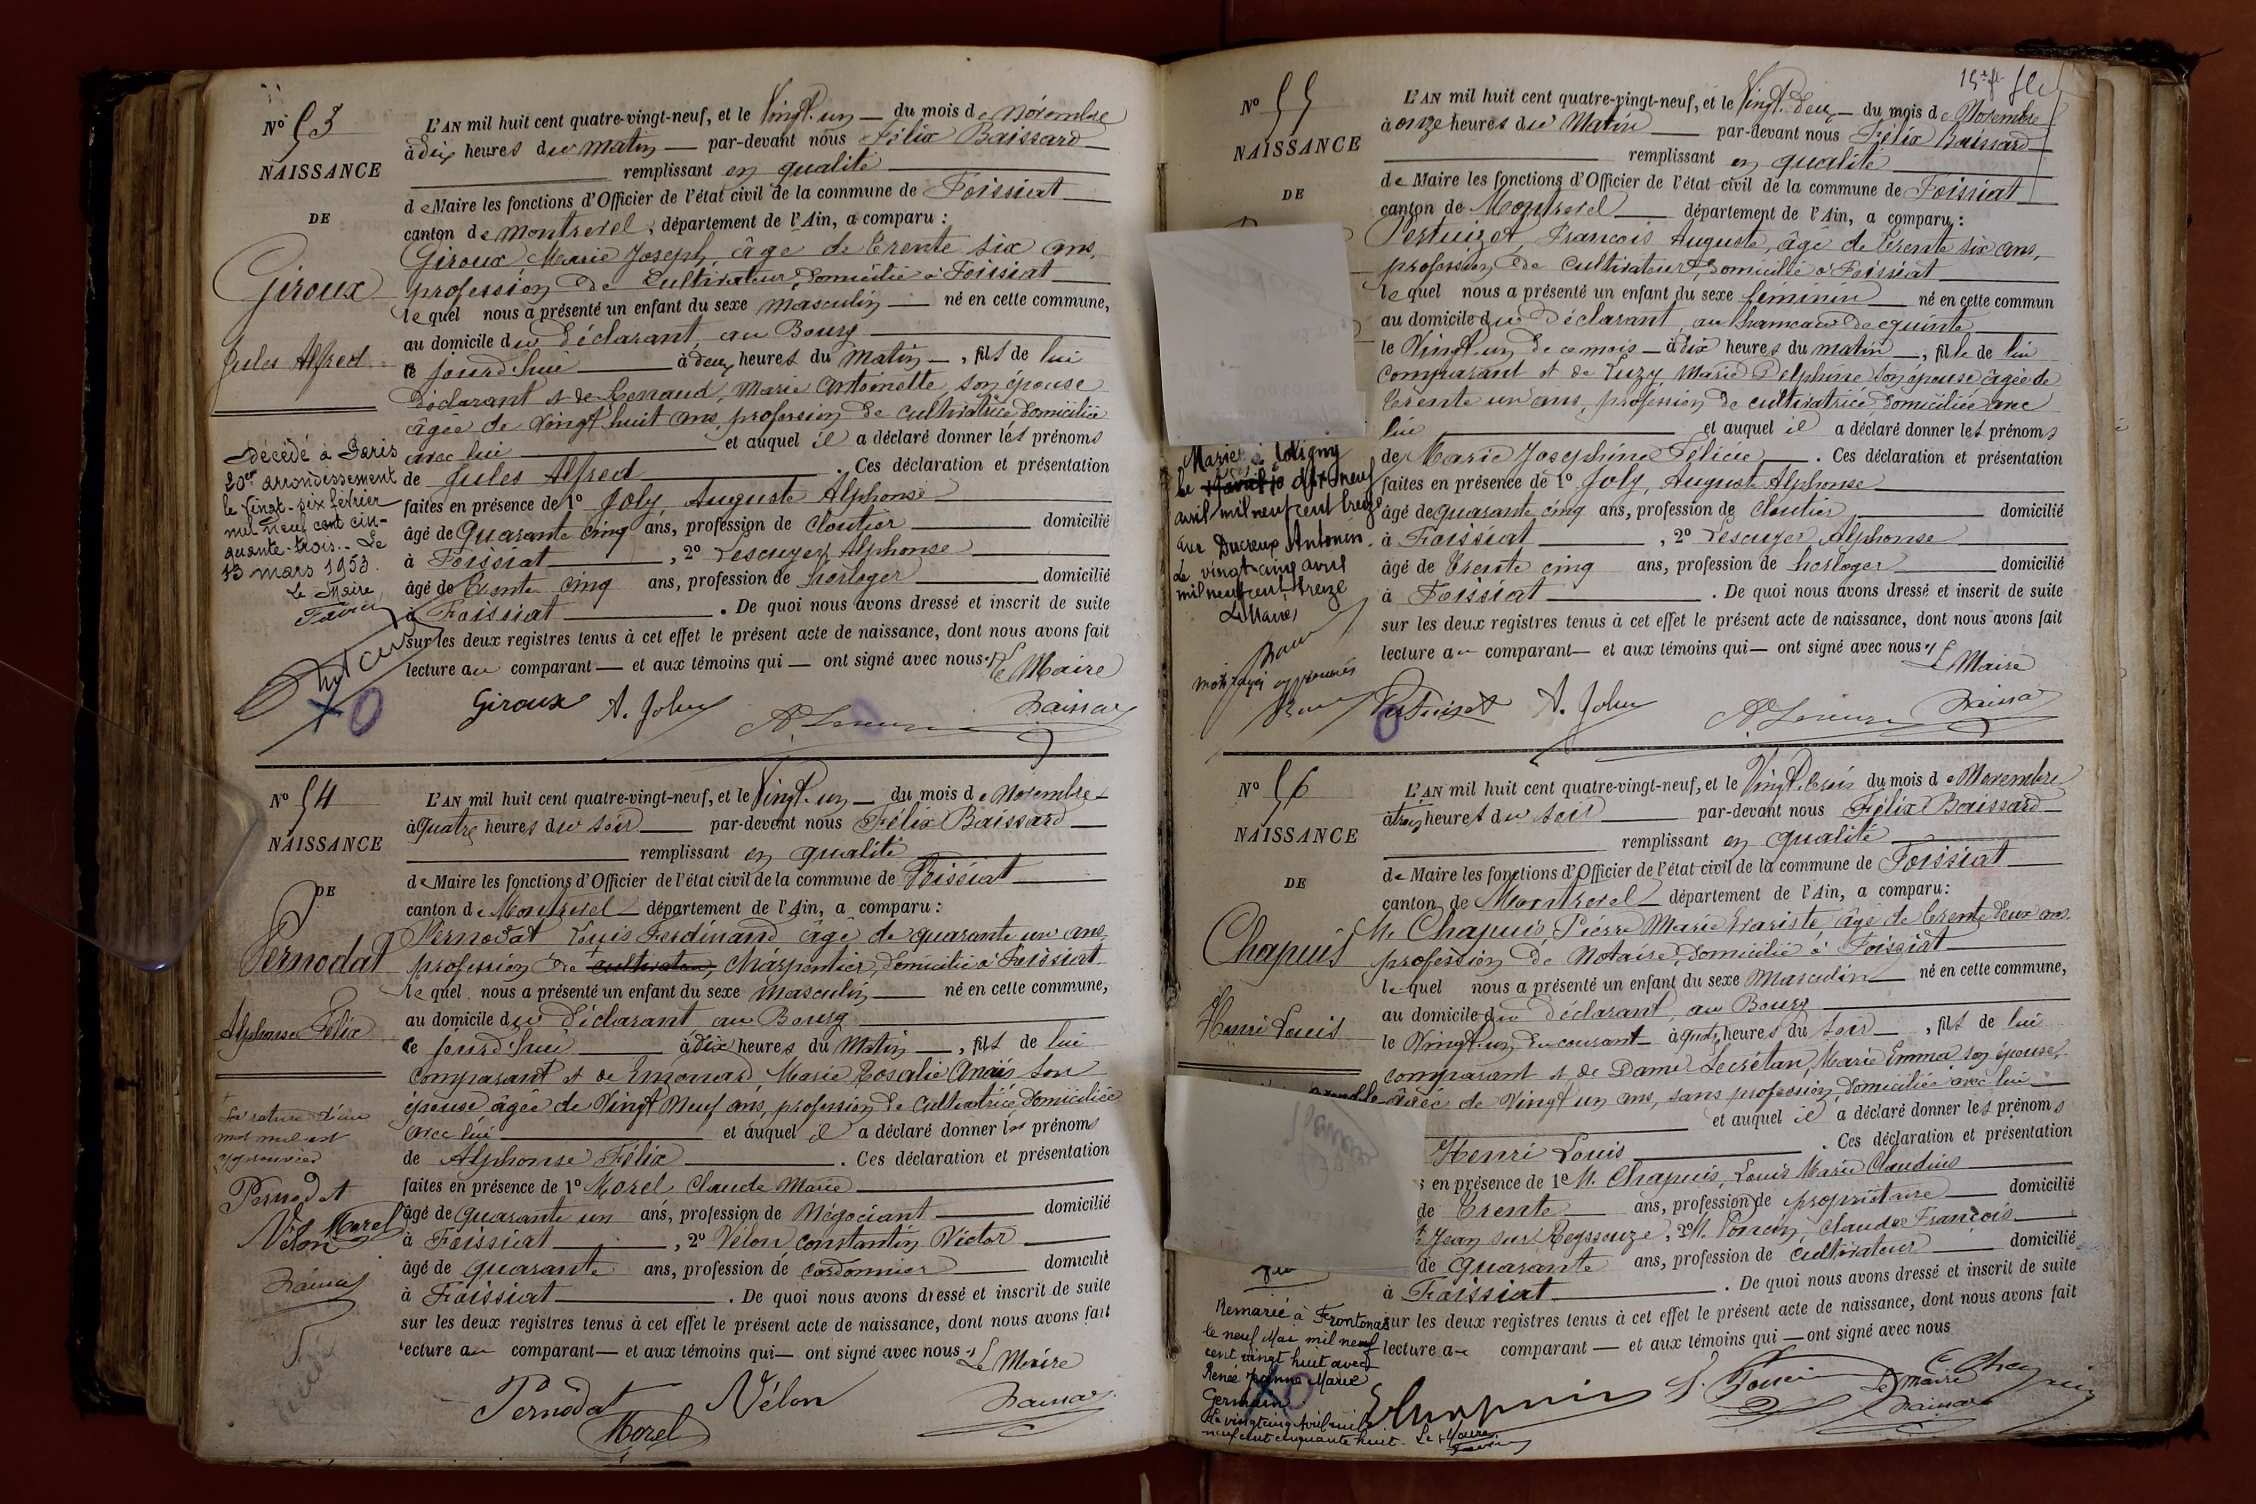 Nº 53
NAISSANCE
DE
Giroux
Jules Alfred
Décédé à Paris
20er arrondissement
le vingt-six février
mil neuf cent cin-
quante-trois. Le
13 mars 1953.
Le Maire,
L'AN mil huit cent quatre-vingt-neuf, et le Vingt-un du mois de Novembre
à dix heures du matin par-devant nous Félix Baissard
remplissant en qualité
de Maire les fonctions d'Officier de l'état civil de la commune de Foissiat
canton de Montrevel, département de l'Ain, a comparu :
Giroux Marie Joseph, âgé de trente six ans,
profession de Cultivateur, domicilié à Foissiat
lequel nous a présenté un enfant du sexe masculin né en cette commune,
au domicile du déclarant, au Bourg
le jourd'hui à deux heures du matin, fils de lui
déclarant et de Renaud, Marie Antoinette son épouse
âgée de Vingt huit ans, profession de cultivatrice domiciliée
avec lui et auquel il a déclaré donner les prénoms
de Jules Alfred. Ces déclaration et présentation
faites en présence de 1º Joly, Auguste Alphonse
âgé de Quarante cinq ans, profession de Cloutier domicilié
à Foissiat, 2º Lescuyer Alphonse
âgé de trente cinq ans, profession de horloger domicilié
à Foissiat. De quoi nous avons dressé et inscrit de suite
sur les deux registres tenus à cet effet le présent acte de naissance, dont nous avons fait
lecture au comparant et aux témoins qui ont signé avec nous
Le Maire
Giroux A. Joly
Nº 54
NAISSANCE
DE
Pernodat
Alphonse Félix
La rature d'un
mot nul est
approuvée
Pernodat
Morel
Vélon
L'AN mil huit cent quatre-vingt-neuf, et le Vingt-un du mois de Novembre
à Quatre heures du soir par-devant nous Félix Baissard
remplissant en qualité
de Maire les fonctions d'Officier de l'état civil de la commune de Foissiat
canton de Montrevel département de l'Ain, a comparu :
Pernodat Louis Ferdinand âgé de quarante un ans
profession de cultivateur, Charpentier, domicilié à Foissiat
lequel nous a présenté un enfant du sexe Masculin né en cette commune,
au domicile du déclarant au Bourg
le jourd'hui à dix heures du Matin, fils de lui
comparant et de Emonard Marie Rosalie Anaïs son
épouse âgée de Vingt Neuf ans, profession de cultivatrice, domiciliée
avec lui et auquel il a déclaré donner les prénoms
de Alphonse Félix. Ces déclaration et présentation
faites en présence de 1º Morel Claude Marie
âgé de quarante un ans, profession de Négociant domicilié
à Foissiat, 2º Vélon, Constantin Victor
âgé de quarante ans, profession de cordonnier domicilié
à Foissiat. De quoi nous avons dressé et inscrit de suite
sur les deux registres tenus à cet effet le présent acte de naissance, dont nous avons fait
lecture au comparant et aux témoins qui ont signé avec nous
Le Maire
Pernodat Vélon
Morel
Nº 55
NAISSANCE
DE
Mariée à Coligny
le dix neuf
avril mil neuf cent treize
avec Ducreux Antonin.
Le vingt cinq avril
mil neuf cent treize
Le Maire,
mots rayés approuvés
L'AN mil huit cent quatre-vingt-neuf, et le Vingt-Deux du mois de Novembre
à onze heures du Matin par-devant nous Félix Baissard
remplissant en qualité
de Maire les fonctions d'Officier de l'état civil de la commune de Foissiat
canton de Montrevel département de l'Ain, a comparu :
Pertuizet, François Auguste, âgé de trente six ans,
profession de cultivateur, domicilié à Foissiat
lequel nous a présenté un enfant du sexe féminin né en cette commun
au domicile du déclarant, au hameau de
le Vingt-un de ce mois à dix heures du matin, fille de lui
comparant et de Luzy, Marie Delphine son épouse âgée de
trente un ans, profession de cultivatrice, domiciliée avec
lui et auquel il a déclaré donner les prénoms
de Marie Joséphine Félicie. Ces déclaration et présentation
faites en présence de 1º Joly, Auguste Alphonse
âgé de quarante cinq ans, profession de Cloutier domicilié
à Foissiat, 2º Lescuyer Alphonse
âgé de trente cinq ans, profession de horloger domicilié
à Foissiat. De quoi nous avons dressé et inscrit de suite
sur les deux registres tenus à cet effet le présent acte de naissance, dont nous avons fait
lecture au comparant et aux témoins qui ont signé avec nous
Le Maire
A. Joly
Nº 56
NAISSANCE
DE
Chapuis
Henri Louis
Remarié à Frontonas
le neuf Mai mil neuf
cent vingt huit avec
Renée Jeanne Marie
Germain
Le vingt cinq Avril mil
neuf cent cinquante huit. Le Maire
L'AN mil huit cent quatre-vingt-neuf, et le Vingt-trois du mois de Novembre
à trois heures du soir par-devant nous Félix Baissard
remplissant en qualité
de Maire les fonctions d'Officier de l'état civil de la commune de Foissiat
canton de Montrevel département de l'Ain, a comparu :
M. Chapuis, Pierre Marie Evariste, âgé de trente deux ans
profession de Notaire, domicilié à Foissiat
lequel nous a présenté un enfant du sexe Masculin né en cette commune,
au domicile du déclarant, au Bourg
le Vingt-un du courant à quatre heures du soir, fils de lui
comparant et de Dame Lecrétan, Marie Emma son épouse,
âgée de Vingt un ans, sans profession, domiciliée avec lui
et auquel il a déclaré donner les prénoms
Henri Louis. Ces déclaration et présentation
s en présence de 1º M. Chapuis, Louis Marie Claudius
de trente ans, profession de propriétaire domicilié
t Jean sur Reyssouze, 2º M. Poncin, Claude François
de quarante ans, profession de cultivateur domicilié
à Foissiat. De quoi nous avons dressé et inscrit de suite
sur les deux registres tenus à cet effet le présent acte de naissance, dont nous avons fait
lecture au comparant et aux témoins qui ont signé avec nous
Le Maire